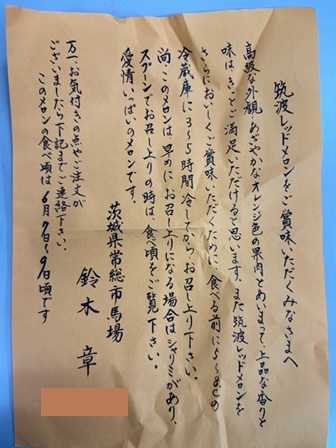 筑波レッドメロンをご賞味いただくみなさまへ
高級な外観、あざやかなオレンジ色の果肉とあいまって、上品な香りと
味は、きっとご満足いただけると思います。また筑波レッドメロンを
さらにおいしくご賞味いただくために、食べる前に5〜8℃の
冷蔵庫に3〜5時間冷してからお召し上り下さい。
尚このメロンは早めにお召し上りになる場合はシャリミがあり、
スプーンでお召し上りの時は、食べ頃をご覧下さい。
愛情いっぱいのメロンです。
茨城県常総市馬場
鈴木 章
万一、お気付きの点やご注文が
ございましたら下記までご連絡下さい。
このメロンの食べ頃は6月7日〜9日頃です